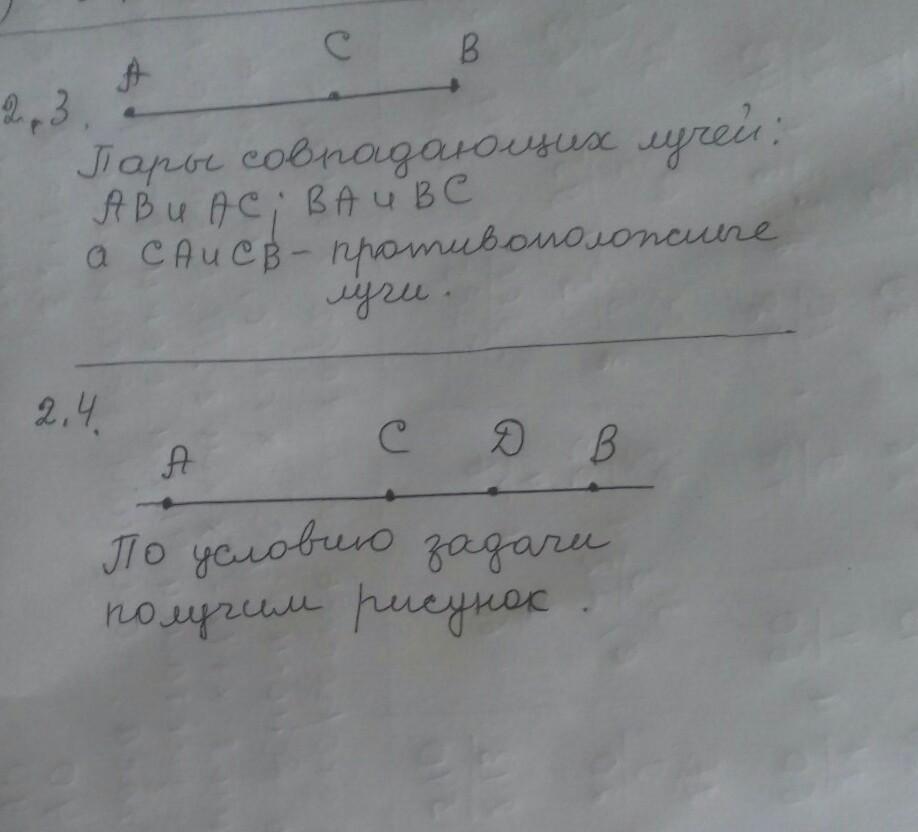 A C B
2.3.
Пары совпадающих лучей:
AB и AC; BA и BC
а CA и CB – противоположные
лучи.
2.4.
A C D B
По условию задачи
получим рисунок.